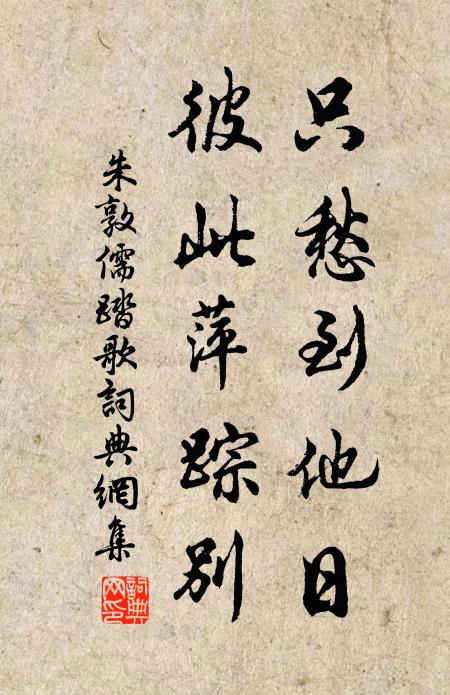 只愁到他日
彼此萍踪别
朱敦儒踏歌詞典網集
詞典網印